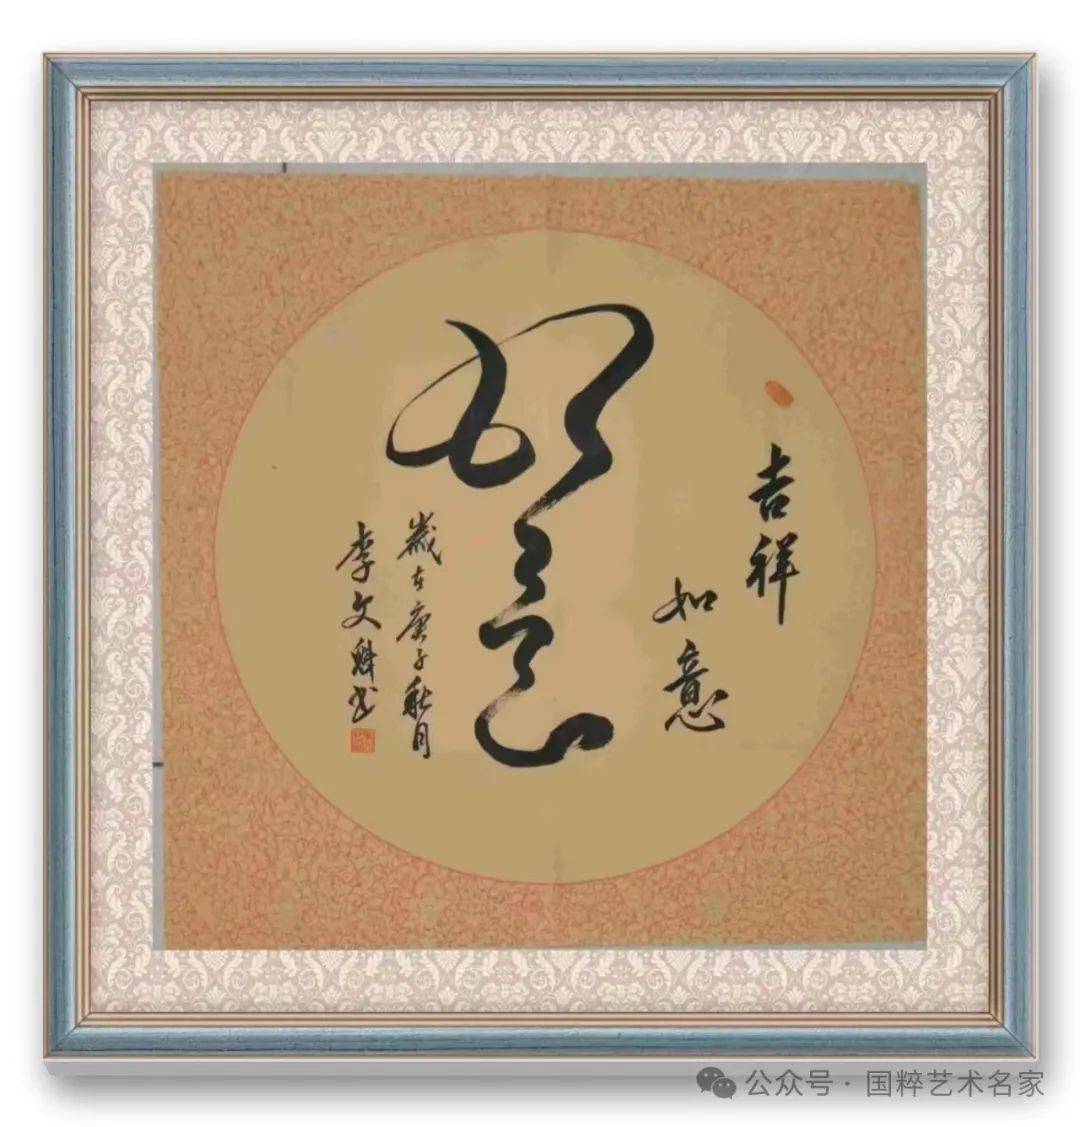 吉祥
如意
如意
歲在庚子秋月
李文魁书
公众号 · 国粹艺术名家